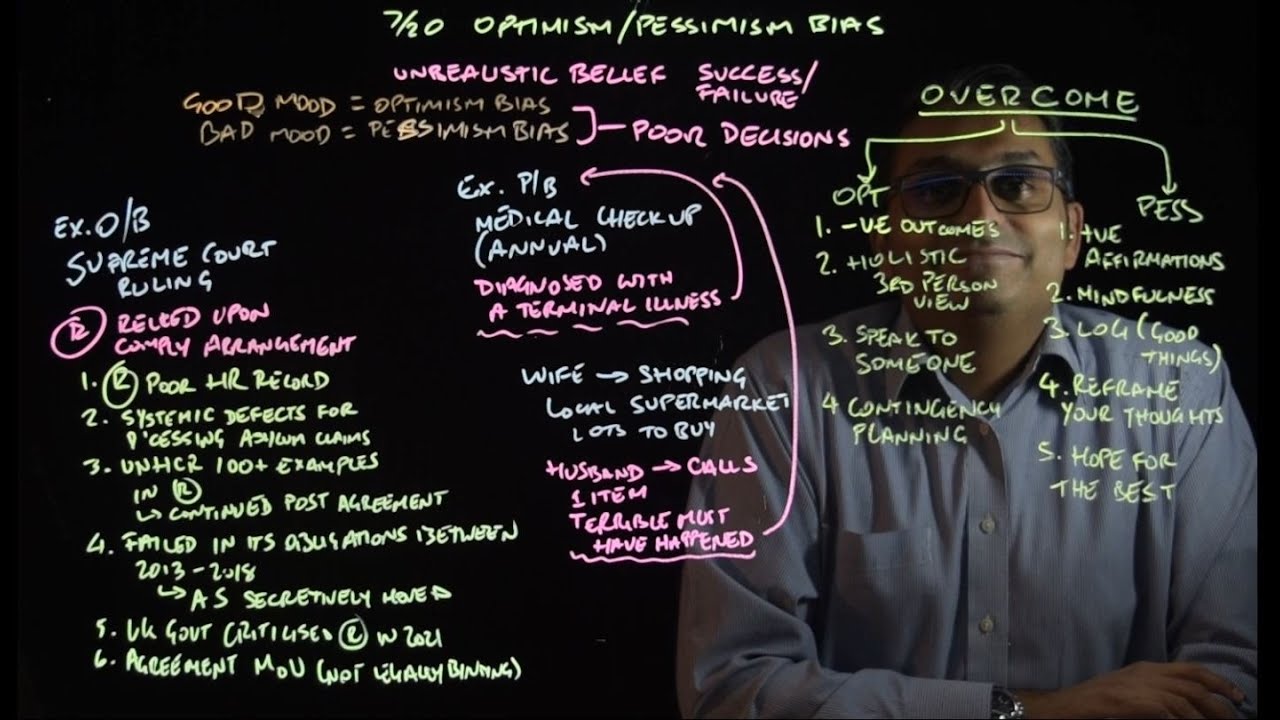 7/20 OPTIMISM/PESSIMISM BIAS
UNREALISTIC BELIEF SUCCESS/
FAILURE
GOOD MOOD = OPTIMISM BIAS
BAD MOOD = PESSIMISM BIAS
POOR DECISIONS
EX. O/B
SUPREME COURT
RULING
R RELIED UPON
COMPLY ARRANGEMENT
1. R POOR HR RECORD
2. SYSTEMIC DEFECTS FOR
P'CESSING ASYLUM CLAIMS
3. UNHCR 100+ EXAMPLES
IN R
CONTINUED POST AGREEMENT
4. FAILED IN ITS OBLIGATIONS BETWEEN
2013-2018
AS SECRETIVELY MOVED
5. UK GOVT CRITILISED R IN 2021
6. AGREEMENT MOU (NOT LEGALLY BINTING)
EX. P/B
MEDICAL CHECKUP
(ANNUAL)
DIAGNOSED WITH
A TERMINAL ILLNESS
WIFE → SHOPPING
LOCAL SUPERMARKET
LOTS TO BUY
HUSBAND → CALLS
1 ITEM
TERRIBLE MUST
HAVE HAPPENED
OVERCOME
OPT
1. -VE OUTCOMES
2. HOLISTIC
3RD PERSON
VIEW
3. SPEAK TO
SOMEONE
4 CONTINGENCY
PLANNING
PESS
1. +VE
AFFIRMATIONS
2. MINDFULNESS
3. LOG (GOOD
THINGS)
4. REFRAME
YOUR THOUGHTS
5. HOPE FOR
THE BEST